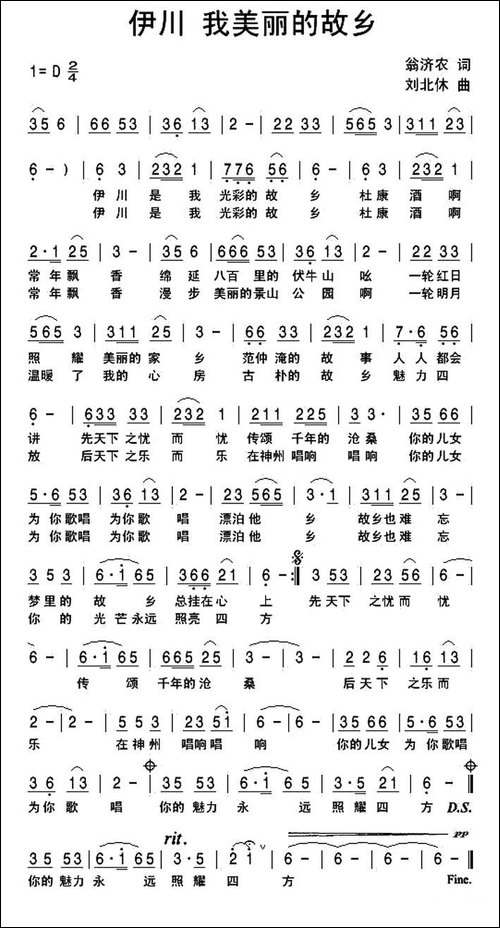 伊川 我美丽的故乡
1=D 2/4
翁济农 词
刘北休 曲
35 6 | 66 53 | 36 13 | 2 - | 22 33 | 565 3 | 311 23 |
6 - ) | 6 3 | 232 1 | 776 56 | 6 - | 63 | 232 1 |
伊 川 是 我 光彩的 故 乡 杜康 酒 啊
伊 川 是 我 光彩的 故 乡 杜康 酒 啊
2·1 25 | 3 - | 35 6 | 666 53 | 36 13 | 2 - | 22 33 |
常 年 飘 香 绵 延 八百 里的 伏牛 山 吆 一轮 红日
常 年 飘 香 漫 步 美丽的 景山 公 园 啊 一轮 明月
565 3 | 311 25 | 3 - | 66 33 | 232 1 | 7·6 56 |
照 耀 美丽的 家 乡 范仲 淹的 故 事 人 人 都会
温暖 了 我的 心 房 古 朴的 故 乡 魅 力 四
6 - | 633 33 | 232 1 | 211 225 | 3 3· | 35 66 |
讲 先天下 之忧 而 忧 传颂 千年的 沧 桑 你的 儿女
放 后天下 之乐 而 乐 在神州 唱响 唱响 你的 儿女
5·6 53 | 36 13 | 2 - | 23 565 | 3·1 | 311 25 | 3 - |
为 你歌唱 为你 歌 唱 漂泊 他 乡 故乡也 难 忘
为 你歌唱 为你 歌 唱 漂泊 他 乡 故乡也 难 忘
3 53 | 6·1 65 | 366 21 | 6 - :| 3 53 | 23 56 | 6 - |
梦 里的 故 乡 总挂在 心 上 先 天下 之忧 而 忧
你 的 光 芒 永远 照亮 四 方
6 - | 6·1 65 | 665 25 | 3 - | 3 - | 22 6 | 16 13 |
传 颂 千年的 沧 桑 后天 下 之乐 而
2 - | 2 - | 55 3 | 23 51 | 6 - | 6 - | 35 66 | 5·6 53 |
乐 在神 州 唱响 唱 响 你的 儿女 为 你歌唱
36 13 | 2 - | 35 53 | 6·1 65 | 3·5 21 | 6 - |
为你 歌 唱 你的 魅力 永 远 照耀 四 方 D.S.
rit. pp
35 53 | 6·1 65 | 3·5 | 2 1 | 6 - | 6 - | 6 - | 6 - |
你的 魅力 永 远 照 耀 四 方 Fine.